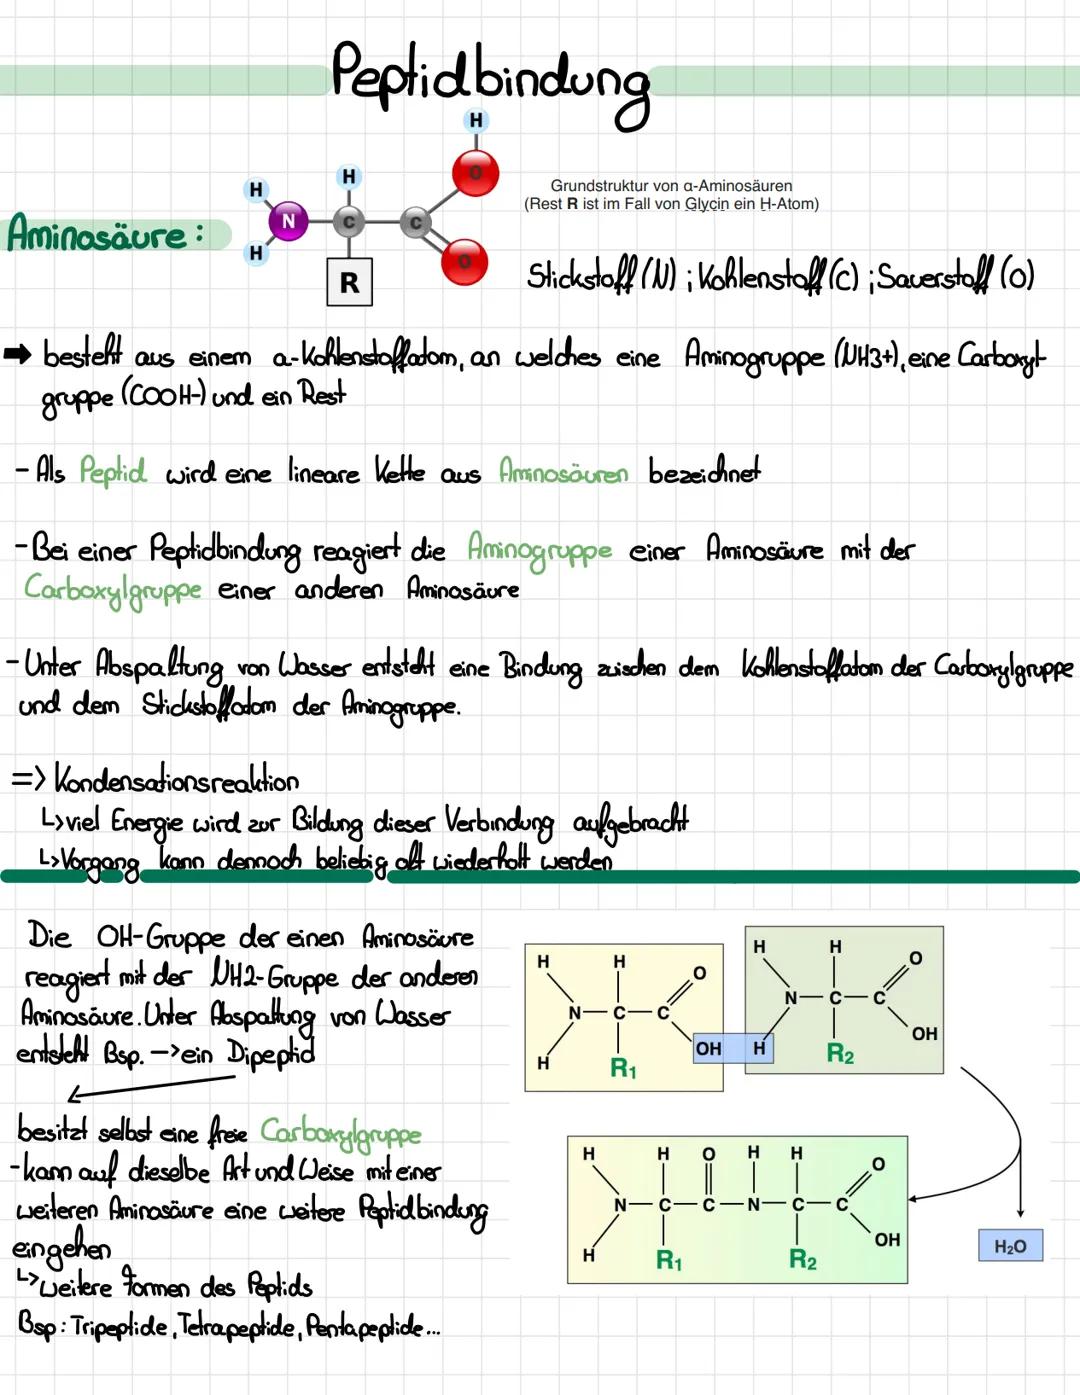 Peptidbindung
H
H
H
O
N
C
C
H
O
R
Grundstruktur von α-Aminosäuren
(Rest R ist im Fall von Glycin ein H-Atom)
Aminosäure:
Stickstoff (N) ; Kohlenstoff (C) ; Sauerstoff (O)
➡ besteht aus einem a-Kohlenstoffatom, an welches eine Aminogruppe (NH3+), eine Carboxyl-
gruppe (COOH-) und ein Rest
- Als Peptid wird eine lineare Kette aus Aminosäuren bezeichnet
- Bei einer Peptidbindung reagiert die Aminogruppe einer Aminosäure mit der
Carboxylgruppe einer anderen Aminosäure
- Unter Abspaltung von Wasser entsteht eine Bindung zwischen dem Kohlenstoffatom der Carboxylgruppe
und dem Stickstoffatom der Aminogruppe.
=> Kondensationsreaktion
↳ viel Energie wird zur Bildung dieser Verbindung aufgebracht
↳ Vorgang kann dennoch beliebig oft wiederholt werden
Die OH-Gruppe der einen Aminosäure
reagiert mit der NH2-Gruppe der anderen
Aminosäure. Unter Abspaltung von Wasser
entsteht Bsp. -> ein Dipeptid
besitzt selbst eine freie Carboxylgruppe
- kann auf dieselbe Art und Weise mit einer
weiteren Aminosäure eine weitere Peptidbindung
eingehen
↳ weitere Formen des Peptids
Bsp: Tripeptide, Tetrapeptide, Pentapeptide...
H H O
N C C
H R₁ OH
H H O
N C C
H R₂ OH
H H O H H O
N C C N C C
H R₁ R₂ OH
H₂O